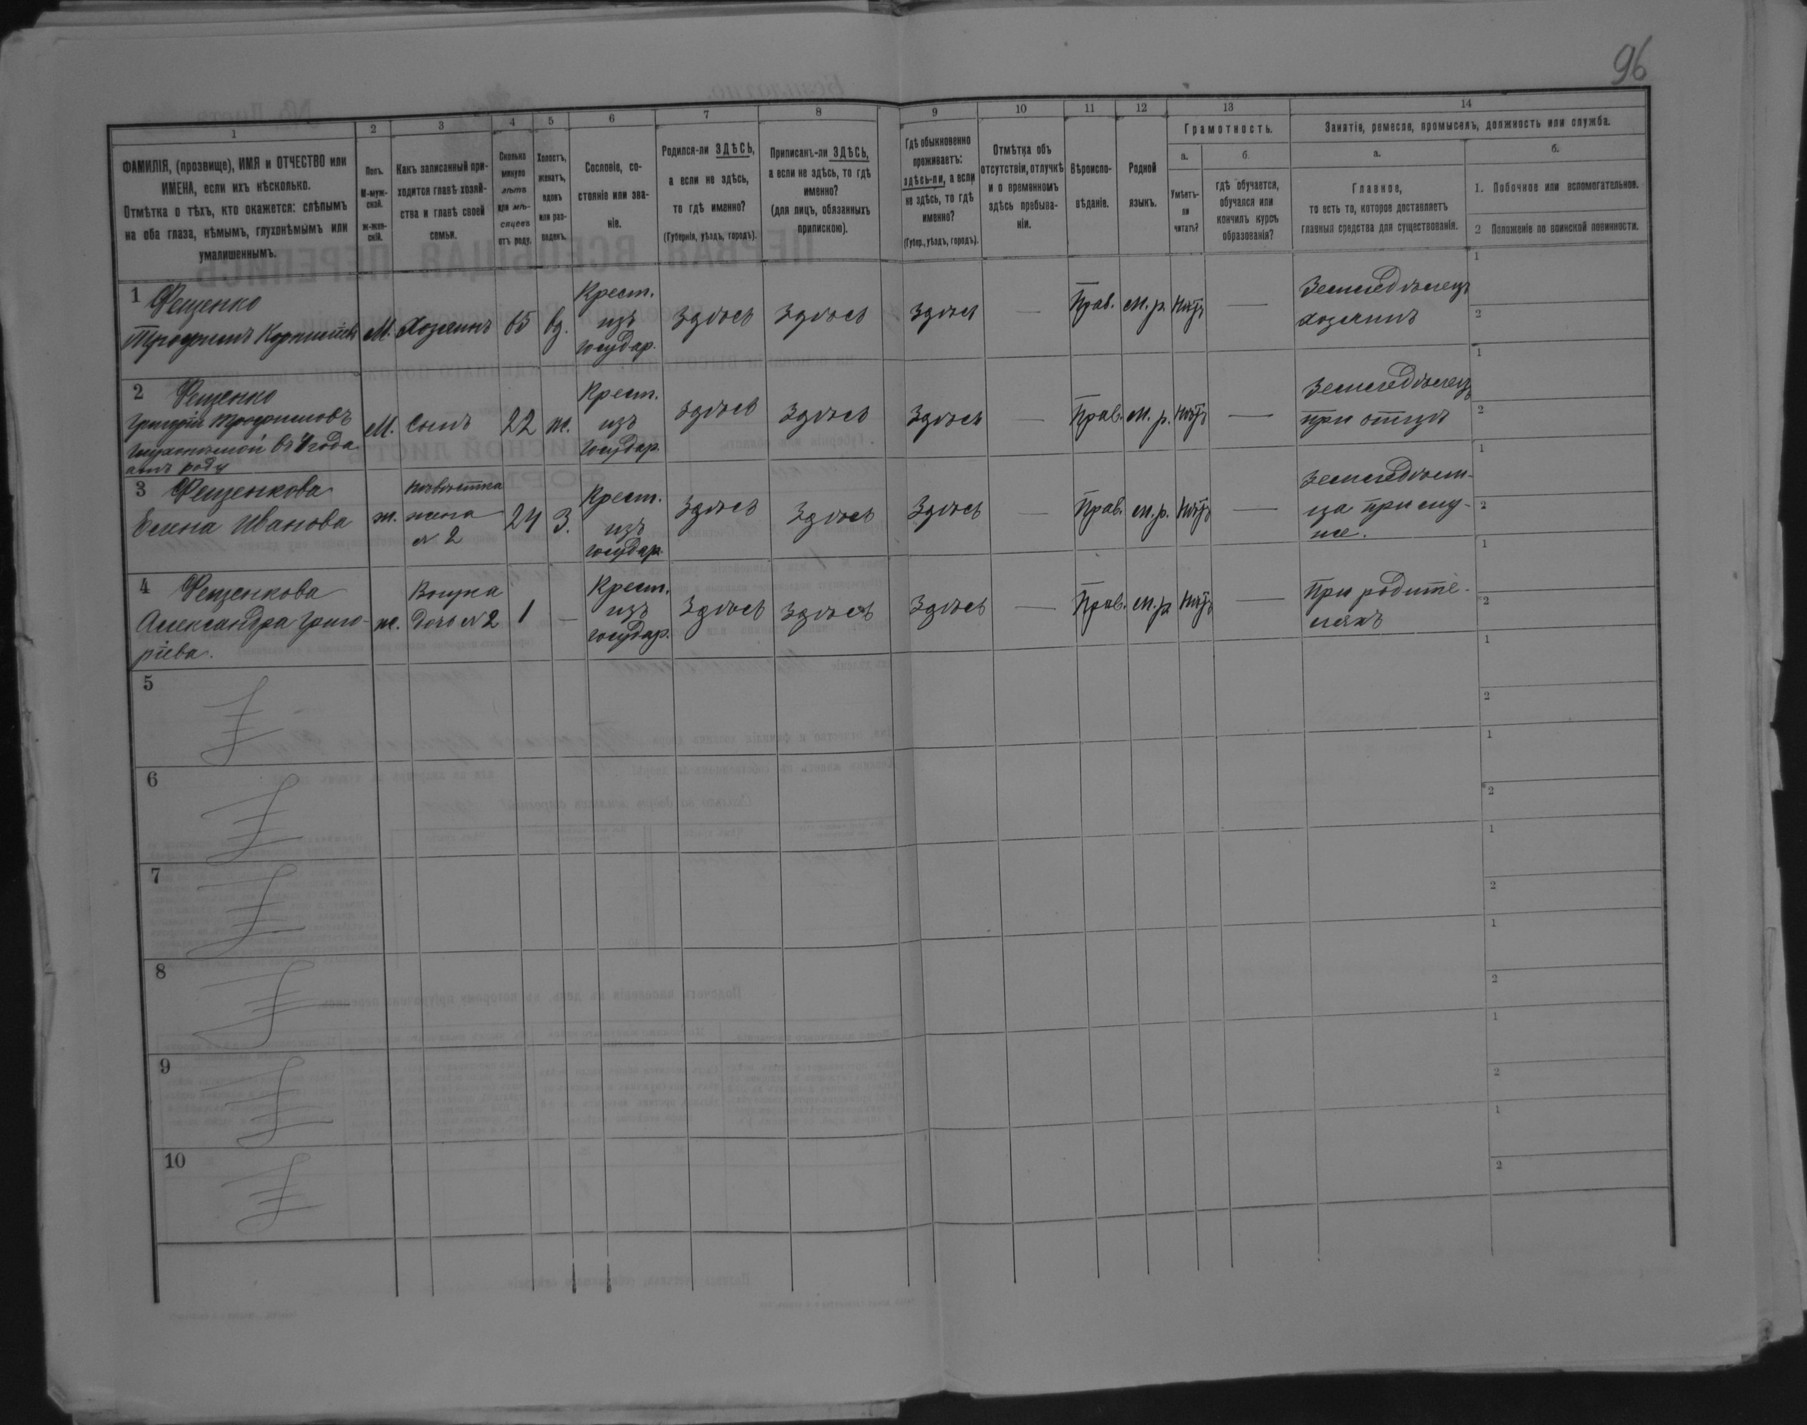 96
1
2
3
4
5
6
7
8
9
10
11
12
13
14
ФАМИЛІЯ, (прозвище), ИМЯ и ОТЧЕСТВО или
ИМЕНА, если ихъ нѣсколько.
Отмѣтка о тѣхъ, кто окажется: слѣпымъ
на оба глаза, нѣмымъ, глухонѣмымъ или
умалишеннымъ.
Полъ.
М-муж-
ской.
ж-жен-
скій.
Какъ записанный при-
ходится главѣ хозяй-
ства и главѣ своей
семьи.
Сколько
минуло
лѣтъ
или мѣ-
сяцевъ
отъ роду.
Холостъ,
женатъ,
вдовъ
или раз-
веденъ.
Сословіе, со-
стояніе или зва-
ніе.
Родился-ли ЗДѢСЬ,
а если не здѣсь,
то гдѣ именно?
(Губернія, уѣздъ, городъ).
Приписанъ-ли ЗДѢСЬ,
а если не здѣсь, то гдѣ
именно?
(для лицъ, обязанныхъ
припискою).
Гдѣ обыкновенно
проживаетъ:
здѣсь-ли, а если
не здѣсь, то гдѣ
именно?
(Губер., уѣздъ, городъ).
Отмѣтка объ
отсутствіи, отлучкѣ
и о временномъ
здѣсь пребыва-
ніи.
Вѣроиспо-
вѣданіе.
Родной
языкъ.
Грамотность.
а.
б.
Умѣетъ-
ли
читать?
гдѣ обучается,
обучался или
кончилъ курсъ
образованія?
Занятіе, ремесло, промыселъ, должность или служба.
а.
б.
Главное,
то есть то, которое доставляетъ
главныя средства для существованія.
1. Побочное или вспомогательное.
2 Положеніе по воинской повинности.
1 Фещенко
Трофимъ
М. Хозяинъ 65 вд.
Крест.
изъ
государ.
Здѣсь Здѣсь Здѣсь — Прав. м. р. Нѣтъ —
Земледѣлецъ
хозяинъ
1
2
2 Фещенко
Григорій Трофимовъ
отъ роду
М. Сынъ 22 ж.
Крест.
изъ
государ.
Здѣсь Здѣсь Здѣсь — Прав. м. р. Нѣтъ —
Земледѣлецъ
при отцѣ
1
2
3 Фещенкова
Елена Иванова
ж.
Невѣстка
жена
№ 2
24 З.
Крест.
изъ
государ.
Здѣсь Здѣсь Здѣсь — Прав. м. р. Нѣтъ —
Земледѣл-
ца при му-
же.
1
2
4 Фещенкова
Александра Григо-
рiева.
ж.
Внучка
Дочь № 2
1 —
Крест.
изъ
государ.
Здѣсь Здѣсь Здѣсь — Прав. м. р. Нѣтъ —
При родите-
ляхъ
1
2
5
1
2
6
1
2
7
1
2
8
1
2
9
1
2
10
1
2